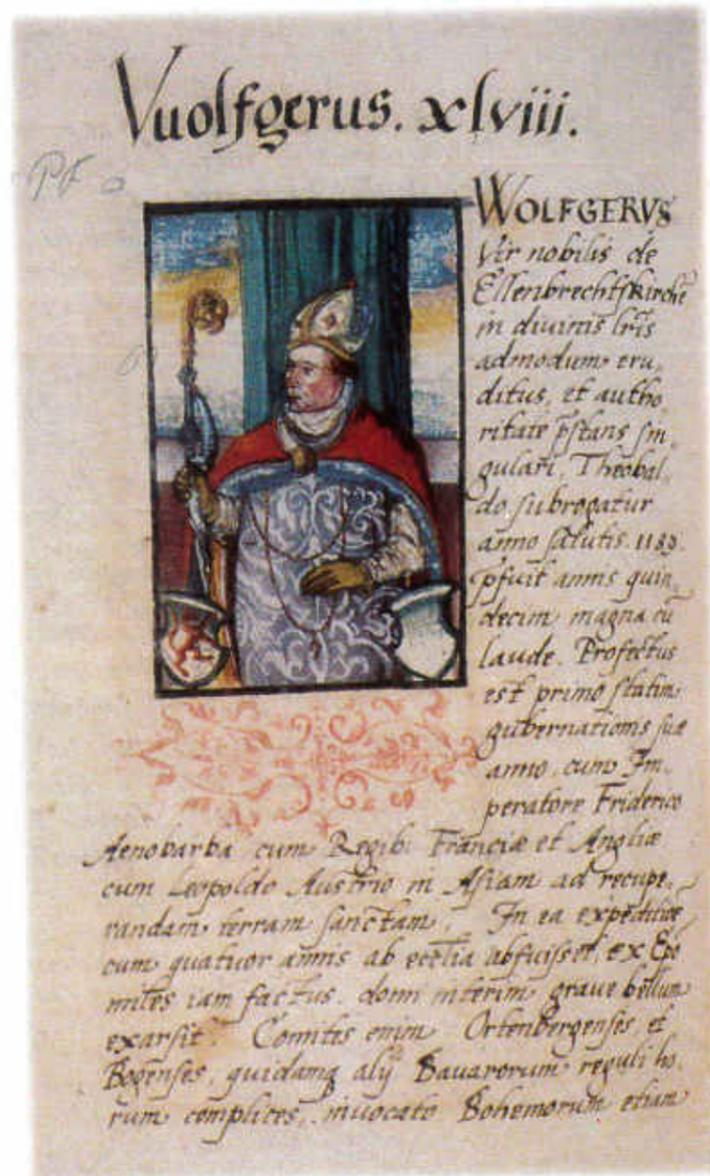 Vuolfgerus. xlviii.
WOLFGERVS
Vir nobilis de
Ellenbrechtskirche
in diuinis lr̄is
admodum eru,
ditus, et autho
ritate p̄stans sin,
gulari, Theobal,
do subrogatur
anno salutis. 1189.
p̄fuit annis quin,
decim magna cū
laude. Profectus
est primo statim
gubernationis suæ
anno, cum Im,
peratore Friderico
Aenobarba cum Regib: Franciæ et Angliæ
cum Leopoldo Austrio in Asiam ad recupe,
randam terram sanctam. In ea expeditiōe
cum quatuor annis ab ecclīa abfuisset, ex
mites iam factus. domi interim graue bellum
exarsit. Comites enim Ortenbergenses, et
Bogenses, quidamq alij Bauarorum reguli ho,
rum complices, inuocato Bohemorum etiam